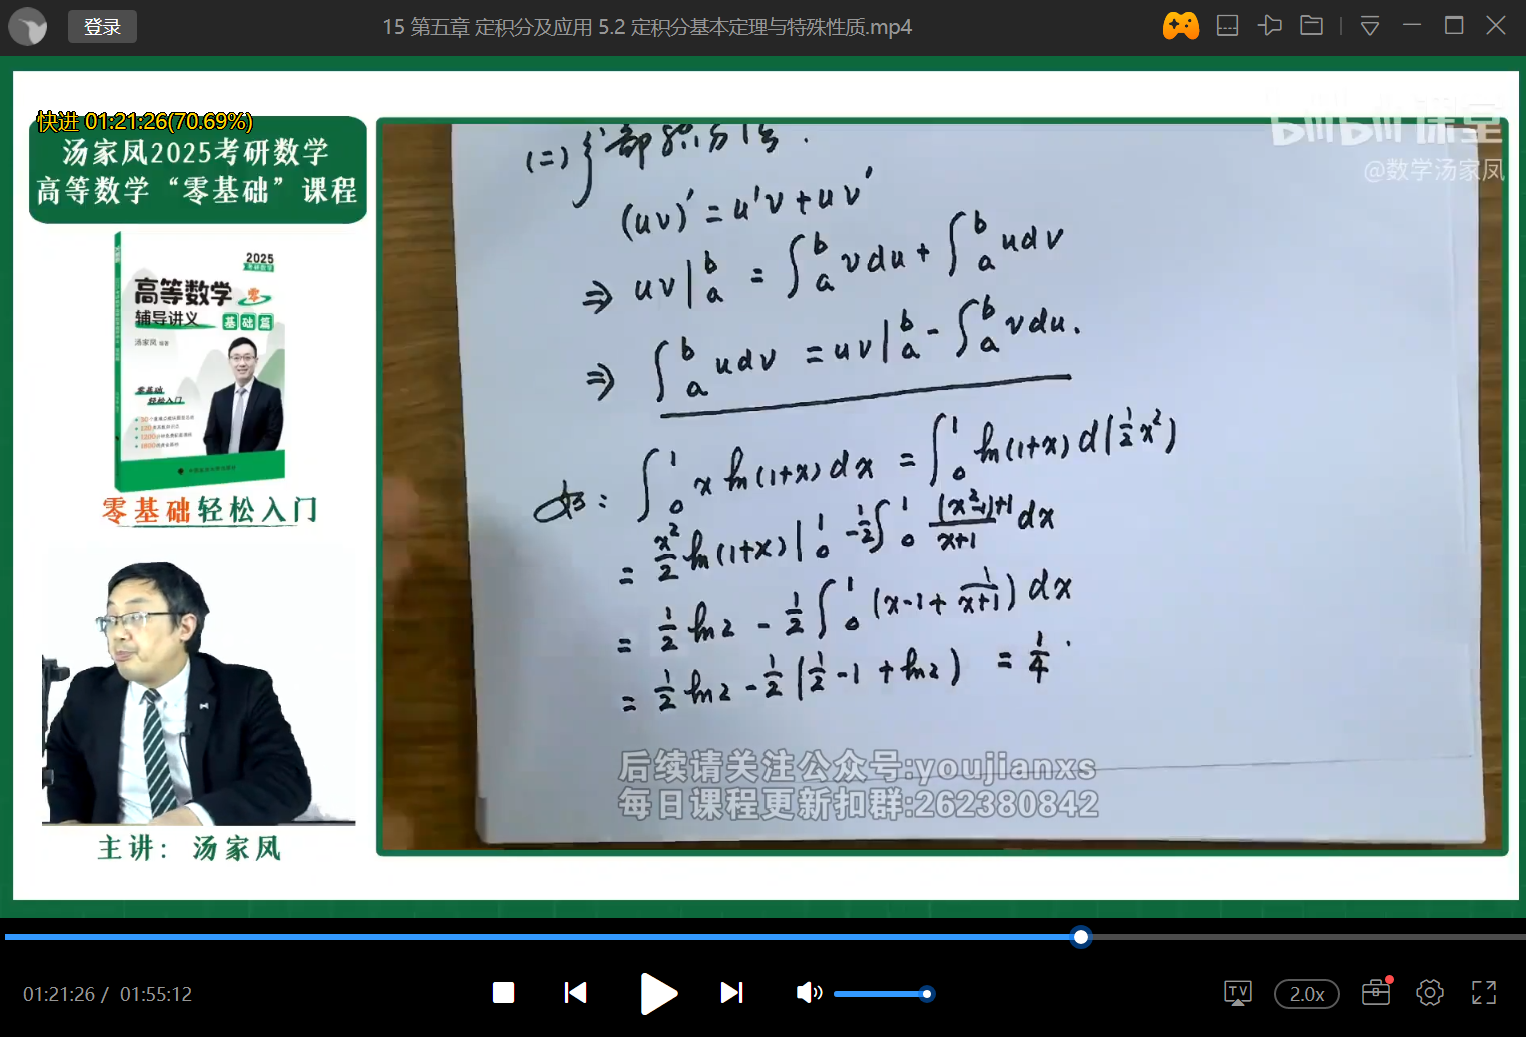 登录
15 第五章 定积分及应用 5.2 定积分基本定理与特殊性质.mp4
快进 01:21:26(70.69%)
汤家凤2025考研数学
高等数学“零基础”课程
bilibili 课堂
@数学汤家凤
2025
考研数学
高等数学 零
辅导讲义 基础篇
汤家凤 编著
零基础
轻松入门
零基础轻松入门
主讲: 汤家凤
(二) 分部积分法.
(uv)' = u'v + uv'
⇒ uv|_a^b = ∫_a^b vdu + ∫_a^b udv
⇒ ∫_a^b udv = uv|_a^b - ∫_a^b vdu.
如: ∫_0^1 x ln(1+x) dx = ∫_0^1 ln(1+x) d(1/2 x²)
= x²/2 ln(1+x)|_0^1 - 1/2 ∫_0^1 (x²-1)+1/x+1 dx
= 1/2 ln2 - 1/2 ∫_0^1 (x-1+ 1/x+1) dx
= 1/2 ln2 - 1/2 (1/2 -1 + ln2) = 1/4.
后续请关注公众号:youjianxs
每日课程更新扣群:262380842
01:21:26 / 01:55:12
TV
2.0x